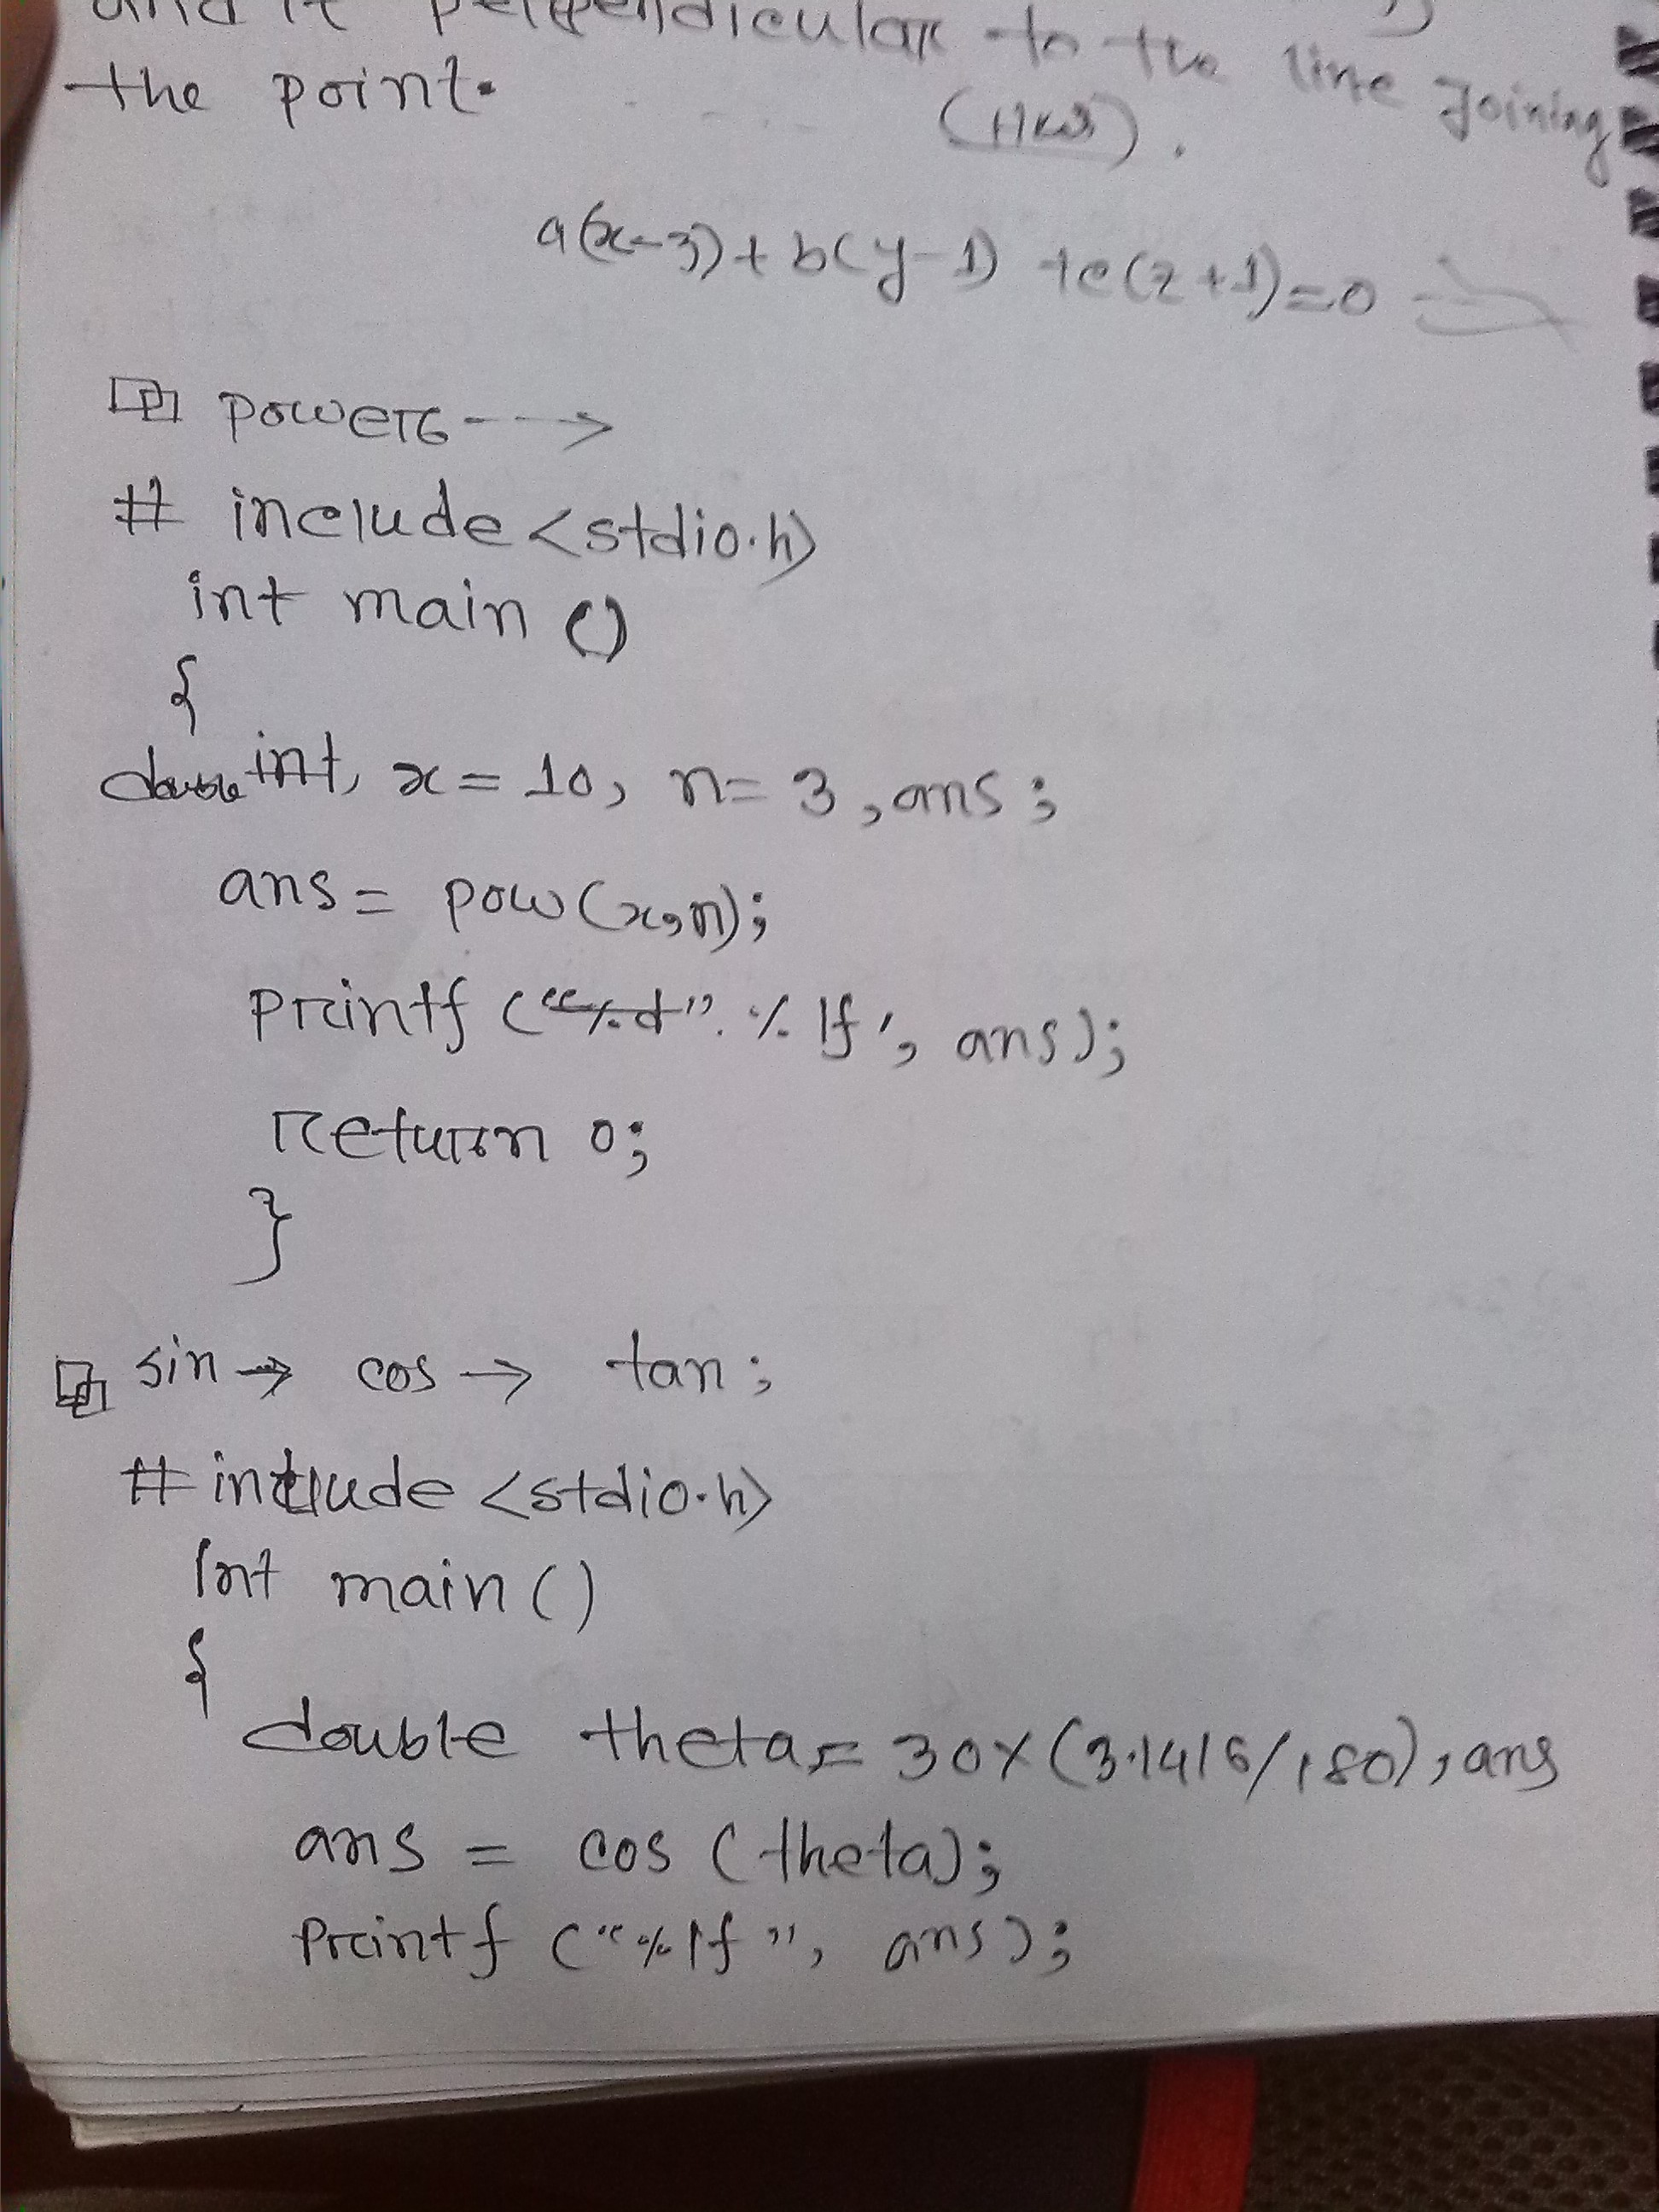 and it perpendicular to the line Joining
the point.
(HW).
a(x-3)+b(y-1)+c(z+1)=0
power -->
# include <stdio.h>
int main ()
{
double int, x = 10, n= 3, ans;
ans = pow(x,n);
printf ("%d". %lf", ans);
return 0;
}
sin → cos → tan;
# include <stdio.h>
int main ()
{
double theta = 30×(3.1416/180), ans
ans = cos (theta);
printf ("%lf", ans);